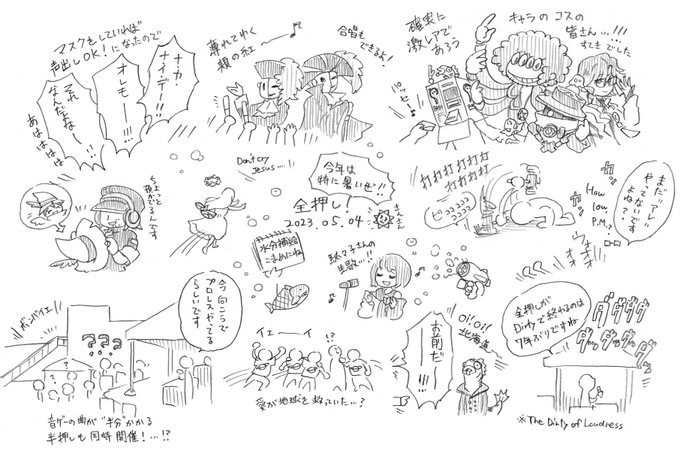 マスクをしていれば
声出しOK！になったので
ナカ・
ナイデー!!
オレモー——!!!
それ
なんだよなー!!
あはははは
暴れてわく
頬の紅〜♪
合唱も
できるよ！
確実に
激レアで
あろう
パッヒー♪
キャラのコスの
皆さん…!!!
すてきでした
ちょっと
預かるんです
Don't cry
Jesus....!
今年は
特に暑いぜ!!
全押し！
2023.05.04
さんきゅ
水分補給
こまめにね
駄々子さんの
生歌…!!
打打打打打打打
ピココココココ
How
low
P.M.?
まだ"アレ"
やってないです
よね？
ウォオオオオ
ボンバイエ！
???
今向こうで
プロレスやってる
らしいです
音ゲーの曲が"半分"かかる
半押しも同時開催！…!?
イェーーイ
!?
愛が地球を救っていた…？
お前だ!!!
Oi！Oi！
北海道〜
全押しが
Dirtyで終わるのは
7年ぶりですね
ダダダダダダダ
※The Dirty of Loudness